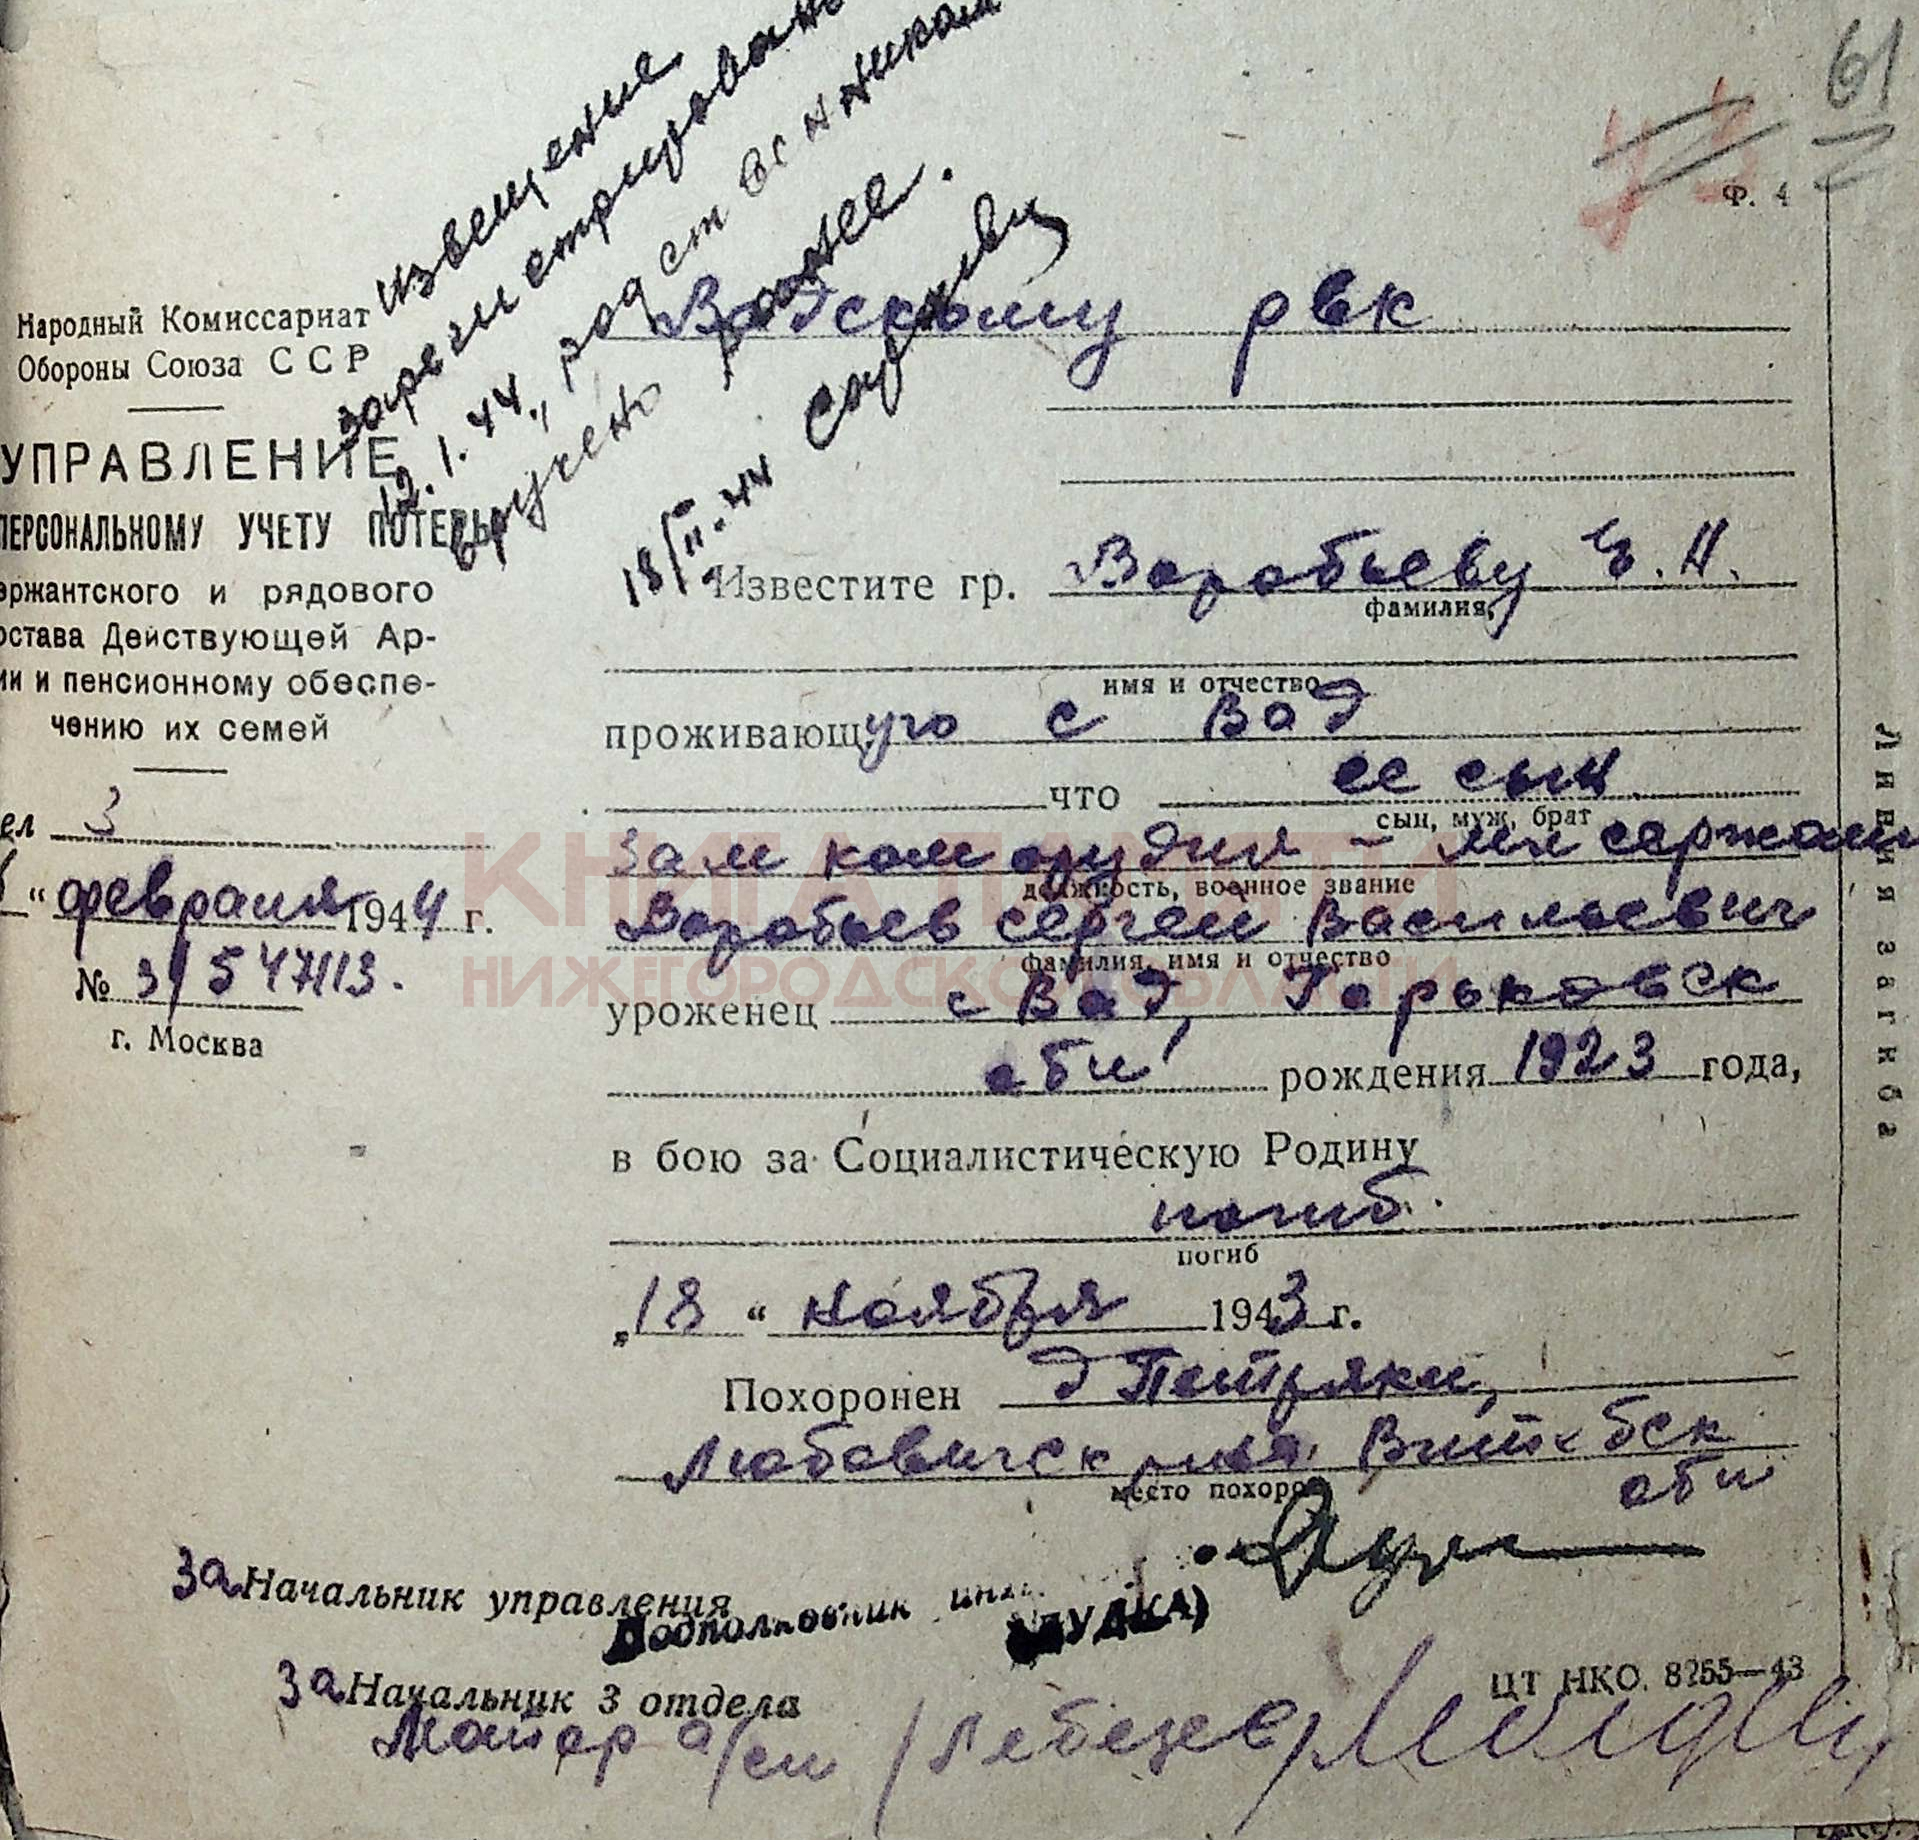 61
Ф. 4
извещение
зарегистрировано
12.1.44., родственникам
вручено ранее.
18/II.44
Народный Комиссариат
Обороны Союза ССР
УПРАВЛЕНИЕ
ПЕРСОНАЛЬНОМУ УЧЕТУ ПОТЕРЬ
ержантского и рядового
остава Действующей Ар-
ии и пенсионному обеспе-
чению их семей
ел 3
“ февраля 1944 г.
№ 3/547113.
г. Москва
Вадскому рвк
Известите гр. Воробьеву Е. Н.
фамилия,
имя и отчество
проживающую с Вад
что ее сын
сын, муж, брат
Зам ком орудия - мл сержант
должность, военное звание
Воробьев Сергей Васильевич
фамилия, имя и отчество
уроженец с Вад, Горьковск
обл рождения 1923 года,
в бою за Социалистическую Родину
погиб.
погиб
„18“ ноября 1943 г.
Похоронен д Петряки,
Любавичск р-на Витебск
обл
место похорон
За Начальник управления
Подполковник инт.
УДКА)
За Начальник 3 отдела
Майор а/сл /Лебедев/
ЦТ НКО. 8255—43
Линия загиба
КНИГА ПАМЯТИ
НИЖЕГОРОДСКОЙ ОБЛАСТИ